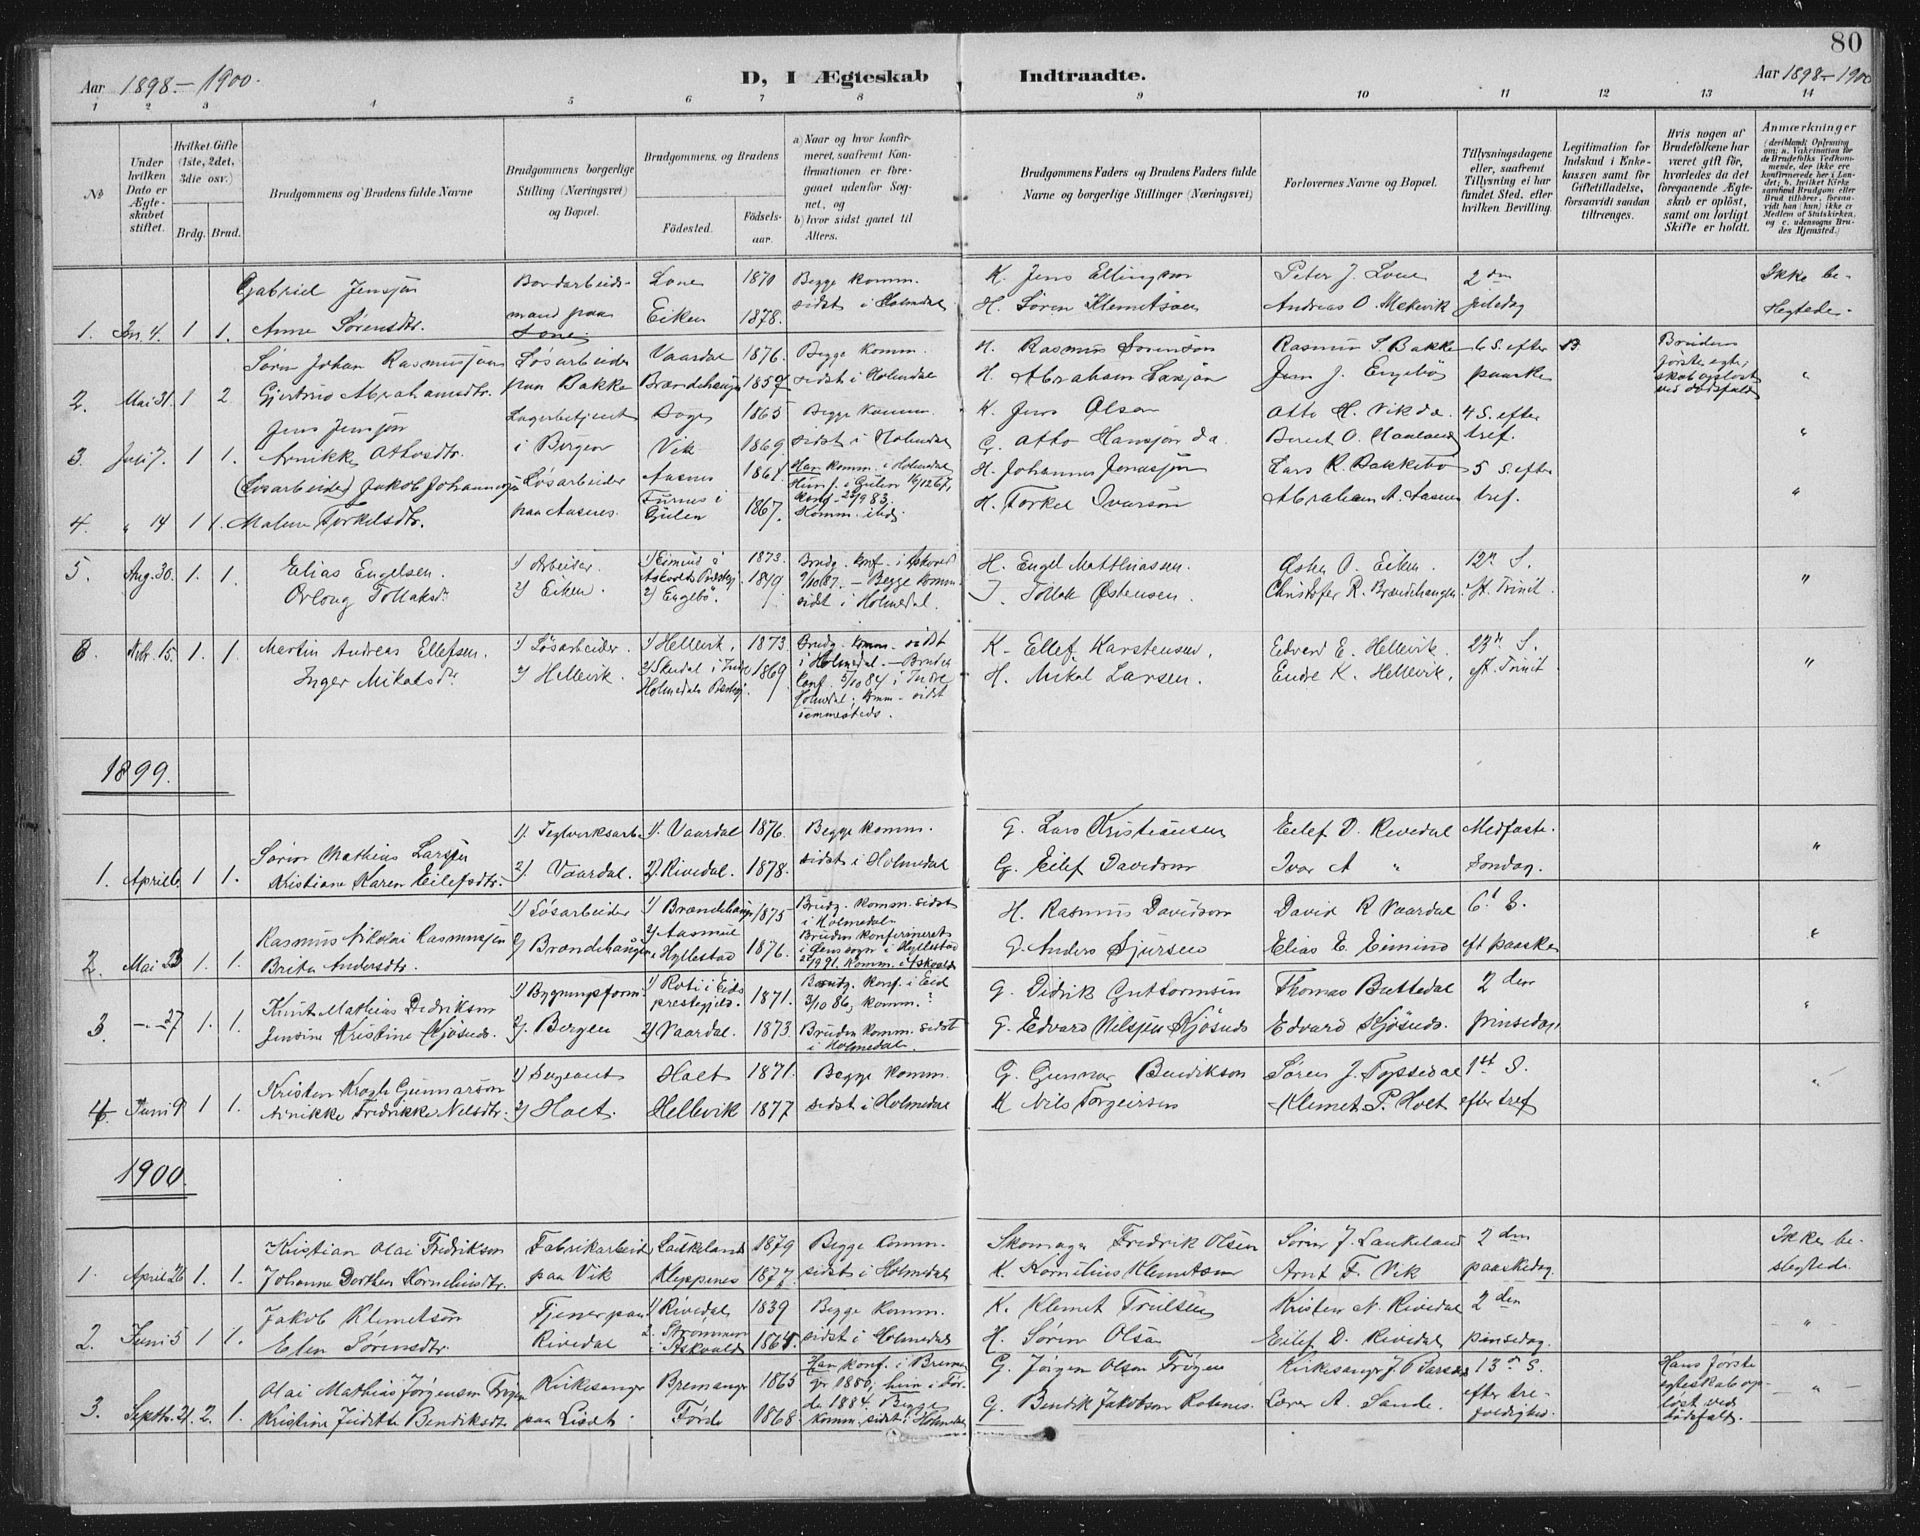 80
Aar 1898 – 1900.
D, I Ægteskab Indtraadte.
Aar 1898 – 1900
1 2 3 4 5 6 7 8 9 10 11 12 13 14
No
Under hvilken Dato er Ægteskabet stiftet.
Hvilket Gifte (1ste, 2det, 3die osv.)
Brdg. Brud.
Brudgommens og Brudens fulde Navne
Brudgommens borgerlige Stilling (Næringsvei) og Bopæl.
Brudgommens og Brudens
Fødested.
Fødselsaar.
a) Naar og hvor konfirmeret, saafremt Konfirmationen er foregaaet udenfor Sognet, og
b) hvor sidst gaaet til Alters.
Brudgommens Faders og Brudens Faders fulde Navne og borgerlige Stillinger (Næringsvei)
Forlovernes Navne og Bopæl.
Tillysningsdagene eller, saafremt Tillysning ei har fundet Sted, efter hvilken Bevilling.
Legitimation for Indskud i Enkekassen samt for Giftetilladelse, forsaavidt saadan tiltrænges.
Hvis nogen af Brudefolkene har været gift før, hvorledes da det foregaaende Ægteskab er opløst, samt om lovligt Skifte er holdt.
Anmærkninger (deriblandt Oplysning om: a. Vakcination for de Brudefolks Vedkommende, der ikke ere konfirmerede her i Landet; b. hvilket Kirkesamfund Brudgom eller Brud tilhører, forsaavidt han (hun) ikke er Medlem af Statskirken, og c. udensogns Brudes Hjemsted.)
Gabriel Jensjon Bordarbeids- Lone 1870 Begge komm. K. Jens Ellingson Peter J. Lone 2 den Ikke be-
1. Jan. 4. 1 1. Anne Sørensdtr. mand paa Lone Eiken 1878. sidst i Holmedal H. Søren Klemetsen Andreas O. Mekevik juledag slegtede-
Søren Johan Rasmussøn Løsarbeider Vaardal 1876. Begge komm. H. Rasmus Sørenson Rasmus S. Bakke 6 S. efter B. Brudens
2. Mai 31. 1 2 Gjertrud Abrahamsdtr. paa Bakke Brændehaugen 1857 sidst i Holmedal H. Abraham Larsjon Jens J. Engebø paaske første egteskab opløst ved dødsfald "
Jens Jensjon Lagerbetjent 1865 Begge komm. K. Jens Olson Otto H. Vik da. 4 S. efter
3. Juli 7. 1 1. Annikke Ottosdtr. i Bergen Vik 1869 sidst i Holmedal G. Otto Hansjon da. Berent O. tref. "
(Løsarbeider) Jakob Johannesjon Løsarbeider Aasnes 1864. Han komm. i Holmedal H. Johannes Jonasjon Lars R. Bakkebø 5 S. efter
4. " 14 1 1. Malene Torkelsdtr. paa Aasnes. Furnes i Gulen 1867. Hun f. i Gulen 16/12 67, konf. 23/9 83. Komm. ibd. H. Torkel Ivarson Abraham A. Aasnes tref. "
5. Aug. 30. 1. 1. Elias Engelsen. 1) Arbeider. 1) Eimind i Askvolds Præstegj. 1873. Brudg. konf. i Askvold H. Engel Matthiassen. Østen O. Eiken. 12te S.
Orlong Tollaksdr 2) Eiken. 2) Engebø 1879 9/10 87. – Begge komm. sidst i Holmedal. I. Tollak Østensen. Christofer R. Brændehaugen eft. Trinit. "
6. Nvbr. 15. 1. 1. Martin Andreas Ellefsen. 1) Løsarbeider. 1) Hellevik, 1873. Brudg. komm. sidst K. Ellef Karstensen, Edvard E. Hellevik. 23de S.
Inger Mikalsdr 2) Hellevik. 2) Skudal i Indre Holmedals Prstgj. 1869. i Holmedal – Bruden konf. 5/10 84 i Indre Holmedal; komm. sidst sammesteds. H. Mikal Larsen. Endre K. Hellevik, eft. Trinit "
1899.
1) Teglverksarb. 1) Vaardal 1876. Begge komm. G. Lars Kristiansen Eilef D. Rivedal Medfaste-
1. April 6. 1 1. Søren Mathias Larsen Kristiane Karen Eilefsdtr. 2) Vaardal. 2) Rivedal 1878. sidst i Holmedal G. Eilef Davidson Ivar A " Søndag. "
1) Løsarbeider 1) Brændehaugen 1875 Brudg. komm. sidst i Holmedal H. Rasmus Davidson David R Vaardal 6t S.
2. Mai 23 1. 1. Rasmus Nikolai Rasmussøn Brita Andersdtr. 2) Brændehaugen 2) Aasmul i Hyllestad 1876. Bruden konfirmeret i Øensogn i Hyllestad 27/9 91. komm. i Askvold G. Anders Sjursen Elias E. Eimind eft paaske "
Knut Mathias Dedrikson 1) Bygningsform. 1) Roti i Eids prestegjeld. 1871. Brudg. konf. i Eid 3/10 86, komm.? G. Didrik Guttormsen Thomas Buttedal 2 den
3 – " – 27 1. 1. Jensine Kristine Kjøsnds. 2) Bergen 2) Vaardal. 1873 Bruden komm. sidst i Holmedal. G. Edvard Nilsjon Kjøsnds Edvard Kjøsnds. pinsedag "
Kristen Krogh Gunnarson 1) Sergeant Holt 1871. Begge komm. G. Gunnar Bendikson Søren J. Tyssedal 1st S.
4 Juni 9 1 1. Annikke Fredrikke Nilsdtr. 2) Holt. Hellevik 1877 sidst i Holmedal K Nils Torgeirsen Klemet P. Holt efter tref "
1900.
Kristian Olai Fredrikson Fabrikarbeid Laukeland 1879 Begge komm. Skomager Fredrik Olsen Søren J. Laukeland 2 den Ikke be-
1. April 26 1. 1. Johanne Dorthea Korneliusdtr. paa Vik Kleppenes 1877. sidst i Holmedal K. Kornelius Klemetsen Arnt F. Vik paaskedag. slegtede.
Jakob Klemetsøn Tjener paa 1) Rivedal 1839 Begge komm. K. Klemet Trulsen Kristen N. Rivedal 2 den
2. Juni 5 1 1. Elen Sørensdtr. Rivedal 2. Strømmen i Askvold 1864. sidst i Holmedal H. Søren Olsen Eilef D. Rivedal pinsedag. – " –
Olai Mathias Jørgenson Frøyen Kirkesanger Bremanger 1865 Han konf. i Bremanger 1880, hun i Førde 1884. Begge G. Jørgen Olson Frøyen Kirkesanger J. P. 13de S. Hans første
3. Septbr. 21. 2. 1. Kristine Juditte Bendiksdtr. paa Førde 1868 komm. sidst i Holmedal G. Bendik Jakobson Lærer A. Sande. efter trefoldighed. egteskab opløst ved dødsfald. – " –